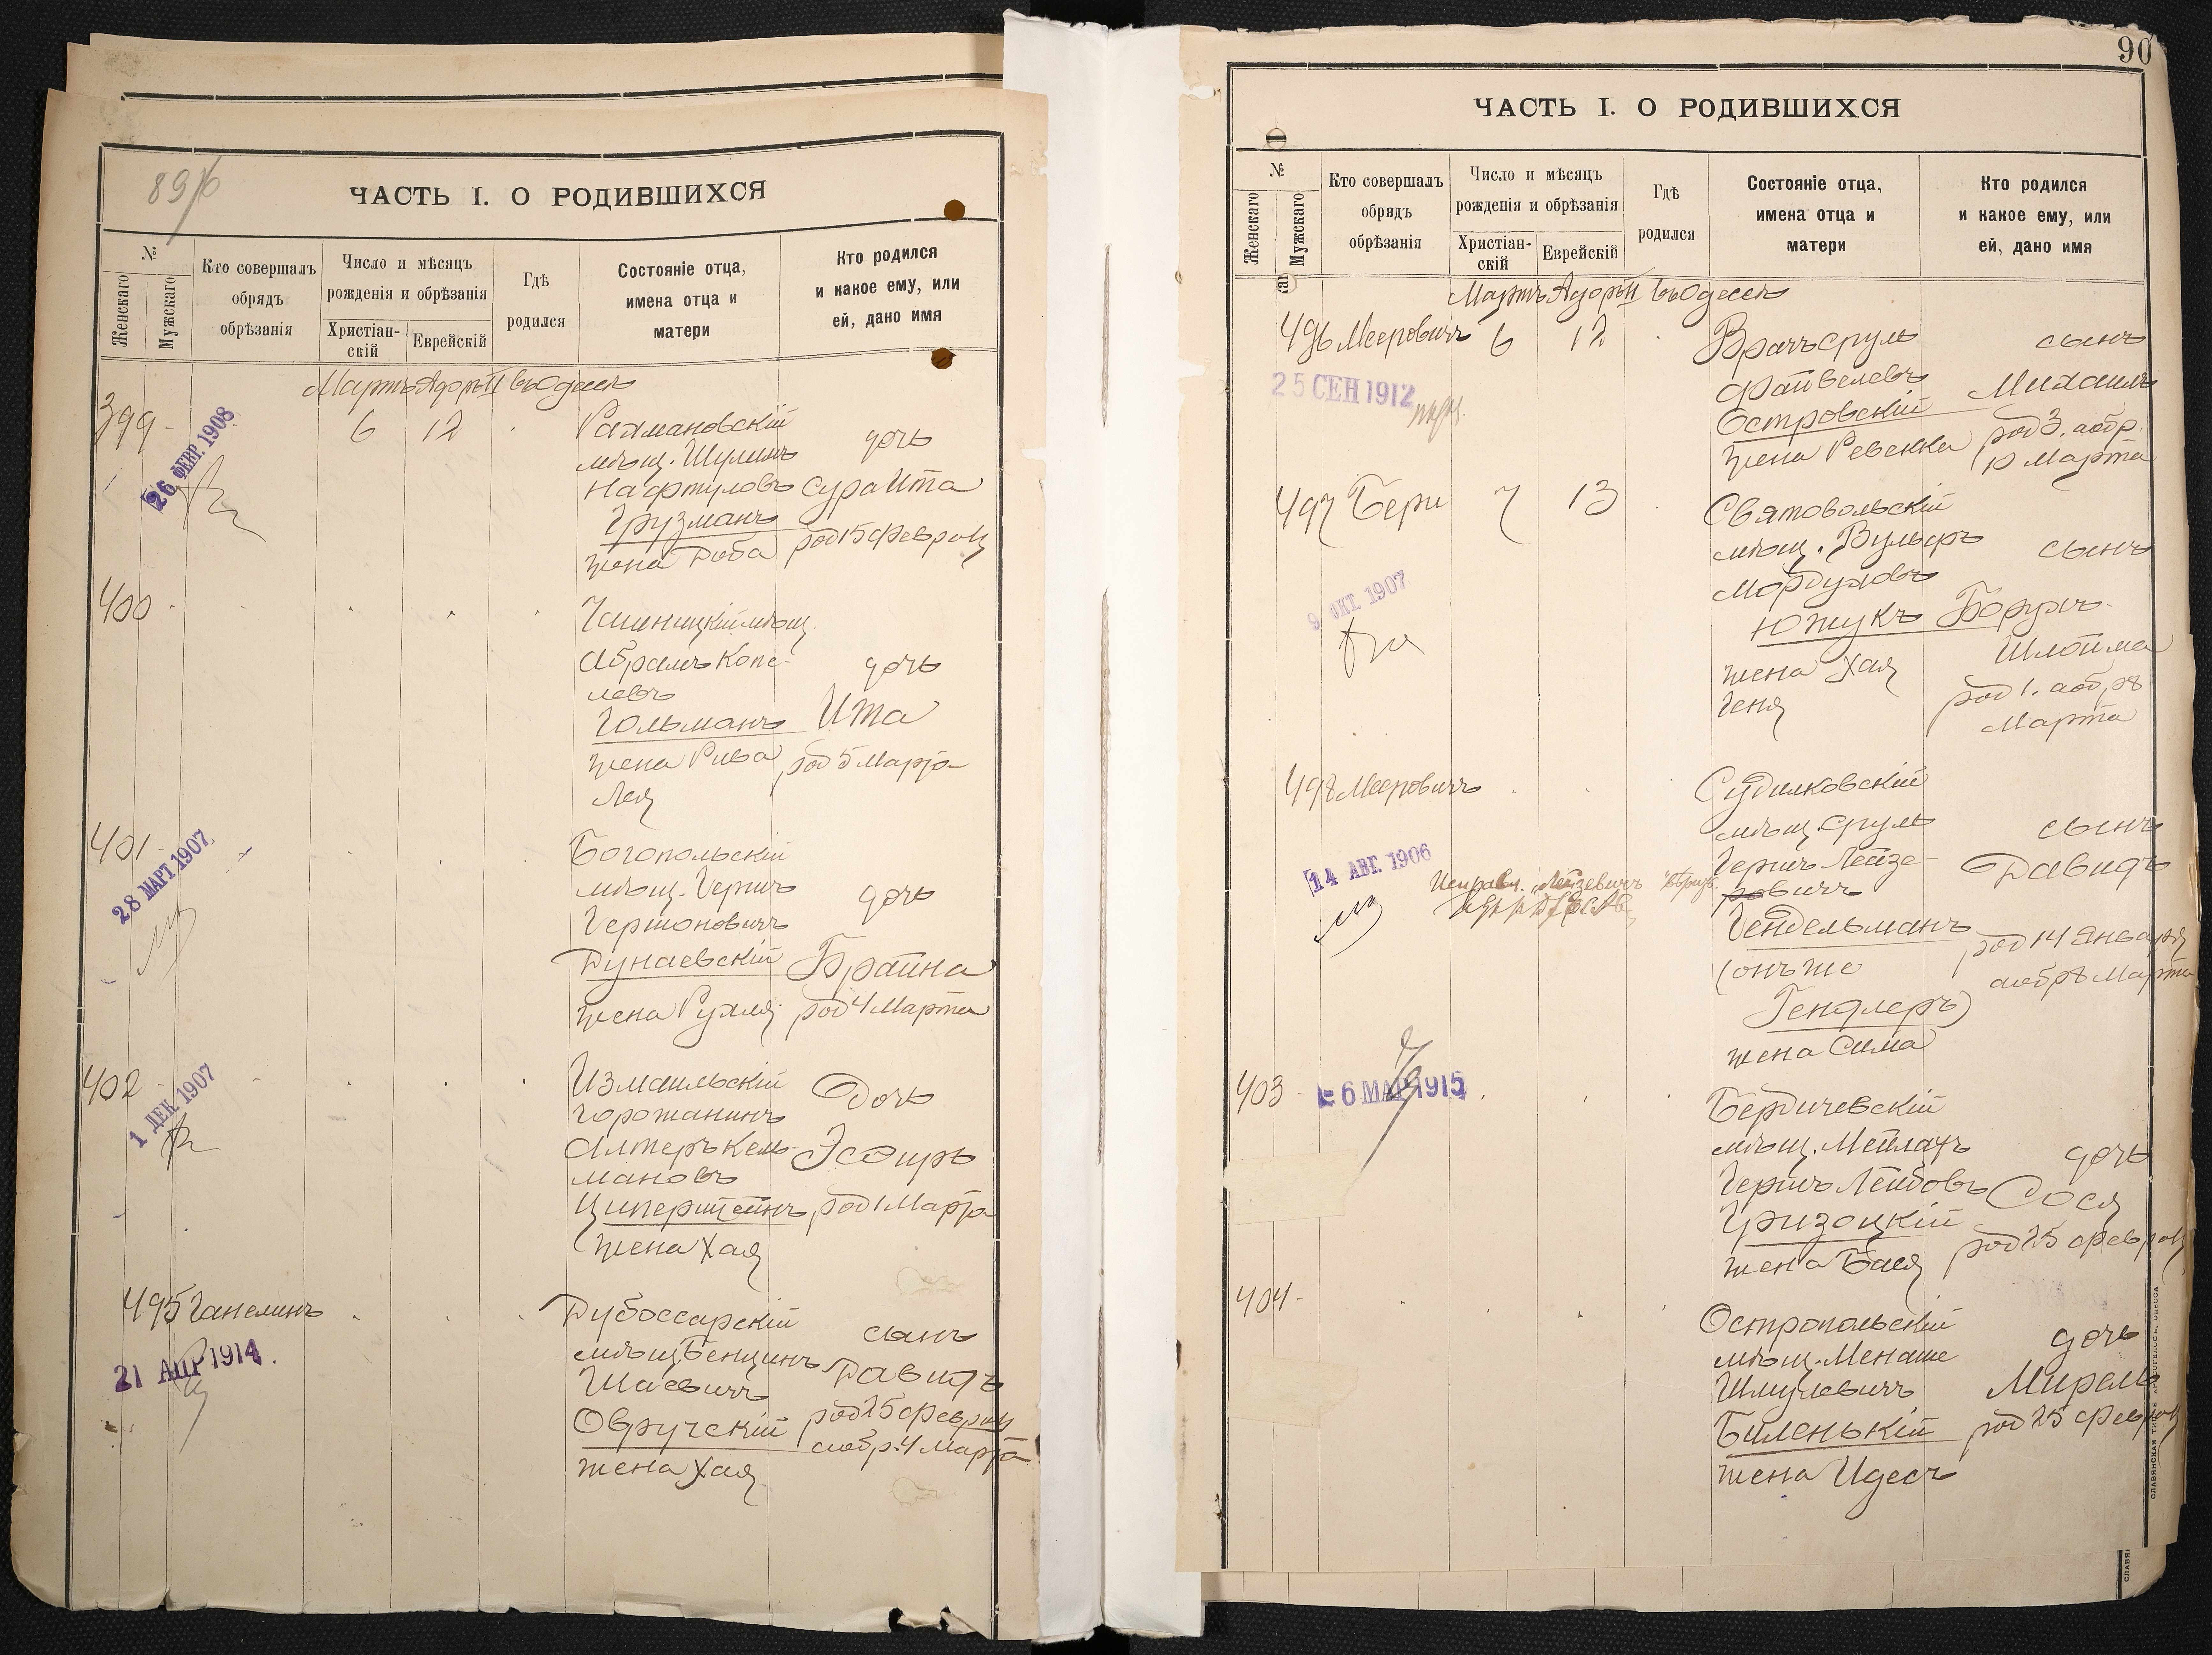 89
ЧАСТЬ I. О РОДИВШИХСЯ
№
Женскаго
Мужскаго
Кто совершалъ
обрядъ
обрѣзанія
Число и мѣсяцъ
рожденія и обрѣзанія
Христіан-
скій
Еврейскій
Гдѣ
родился
Состояніе отца,
имена отца и
матери
Кто родился
и какое ему, или
ей, дано имя
Мартъ Адоръ II въ Одессѣ
399
26 ФЕВР. 1908
6 12
Рахмановскій
мѣщ. Шулимъ
Нафтуловъ
Грузманъ
жена Доба
дочь
Сура Ита
род 15 февраля
400
Чашницкій мѣщ.
Абрамъ Копе-
левъ
Гольманъ
жена Рива
Лея
дочь
Ита
род 5 Марта
401
28 МАРТ. 1907
Богопольскій
мѣщ. Гершъ
Гершоновичъ
Дунаевскій
жена Рухля
дочь
Брайна
род 4 Марта
402
1 ДЕК. 1907
Измаильскій
горожанинъ
Алтеръ Кель-
мановъ
Циперштейнъ
жена Хая
Дочь
Эсѳирь
род 1 Марта
495 Ганелинъ
21 АПР 1914
Дубоссарскій
мѣщ Бенционъ
Шаевичъ
Овручскій
жена Хая
сынъ
Давидъ
род 25 февраля
а обр. 4 Марта
90
ЧАСТЬ I. О РОДИВШИХСЯ
№
Женскаго
Мужскаго
Кто совершалъ
обрядъ
обрѣзанія
Число и мѣсяцъ
рожденія и обрѣзанія
Христіан-
скій
Еврейскій
Гдѣ
родился
Состояніе отца,
имена отца и
матери
Кто родился
и какое ему, или
ей, дано имя
Мартъ Адоръ II въ Одессѣ
496 Мееровичъ 6 12
25 СЕН 1912
Врачъ Сруль
Файвелевъ
Островскій
жена Ревекка
сынъ
Михаилъ
род 3. а обр.
10 Марта
497 Бери 7 13
9 ОКТ. 1907
Святовольскій
мѣщ. Вульфъ
Мордуховъ
Южукъ
жена Хая
Геня
сынъ
Борухъ
Шлойма
род 1. а обр 8
Марта
498 Мееровичъ
14 АВГ. 1906
Исправл. „Лейзевичъ"
Судилковскій
мѣщ Сруль
Гершъ Лейзе-
ровичъ
Гендельманъ
(онъ же
Гендлеръ)
жена Сима
сынъ
Давидъ
род 14 Января
а обр 8 Марта
403
6 МАР 1915
Бердичевскій
мѣщ. Мейлахъ
Гершъ Лейбовъ
Гризоцкій
жена Бася
дочь
Сося
род 25 февраля
404
Остропольскій
мѣщ. Менаше
Шмулевичъ
Биленькій
жена Идесъ
дочь
Мирель
род 25 февраля